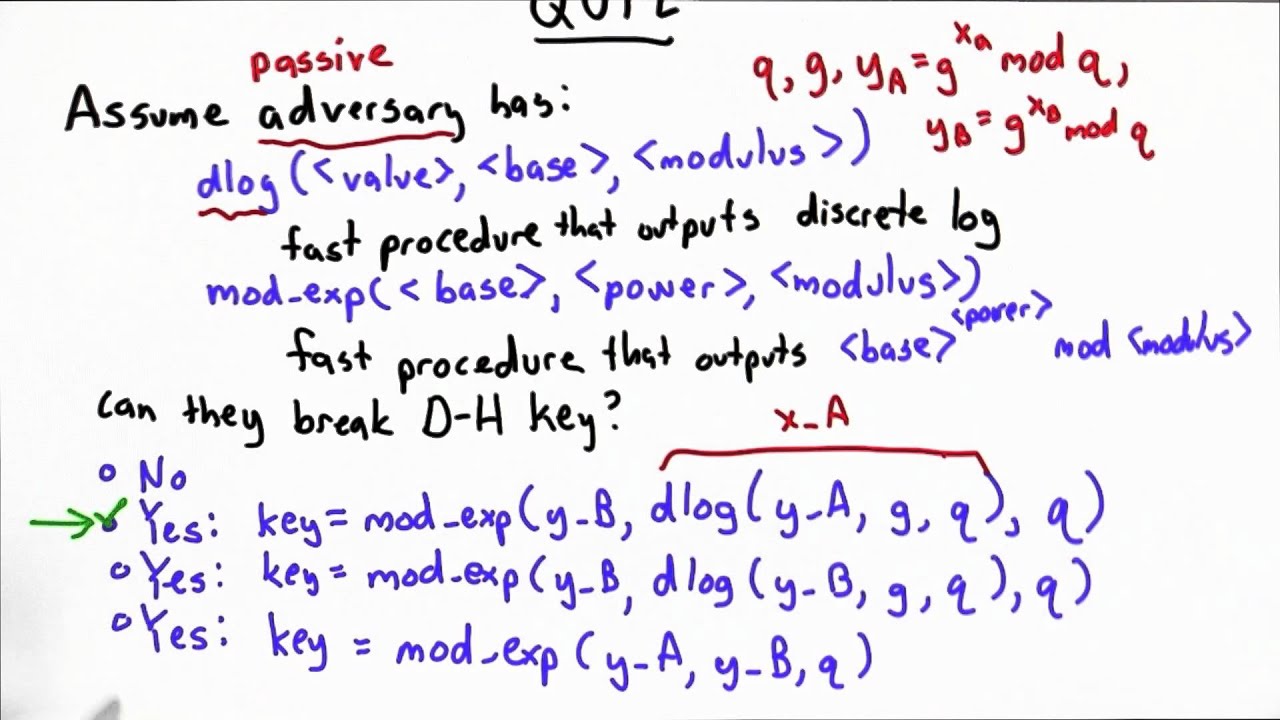 passive
q, g, y_A = g^x_a mod q,
Assume adversary has:
y_B = g^x_B mod q
dlog(<value>, <base>, <modulus>)
fast procedure that outputs discrete log
mod_exp(<base>, <power>, <modulus>)
fast procedure that outputs <base>^<power> mod <modulus>
can they break D-H key?
x_A
No
Yes: key = mod_exp(y_B, dlog(y_A, g, q), q)
Yes: key = mod_exp(y_B, dlog(y_B, g, q), q)
Yes: key = mod_exp(y_A, y_B, q)